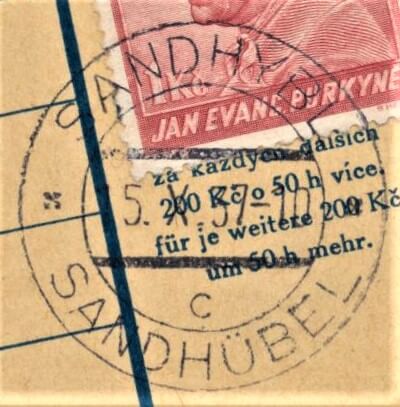 SANDHYBL
1 Kč
JAN EVANG. PURKYNĚ
za každých dalších
200 Kč o 50 h více.
5. X. 37-10
für je weitere 200 Kč
um 50 h mehr.
C
SANDHÜBEL